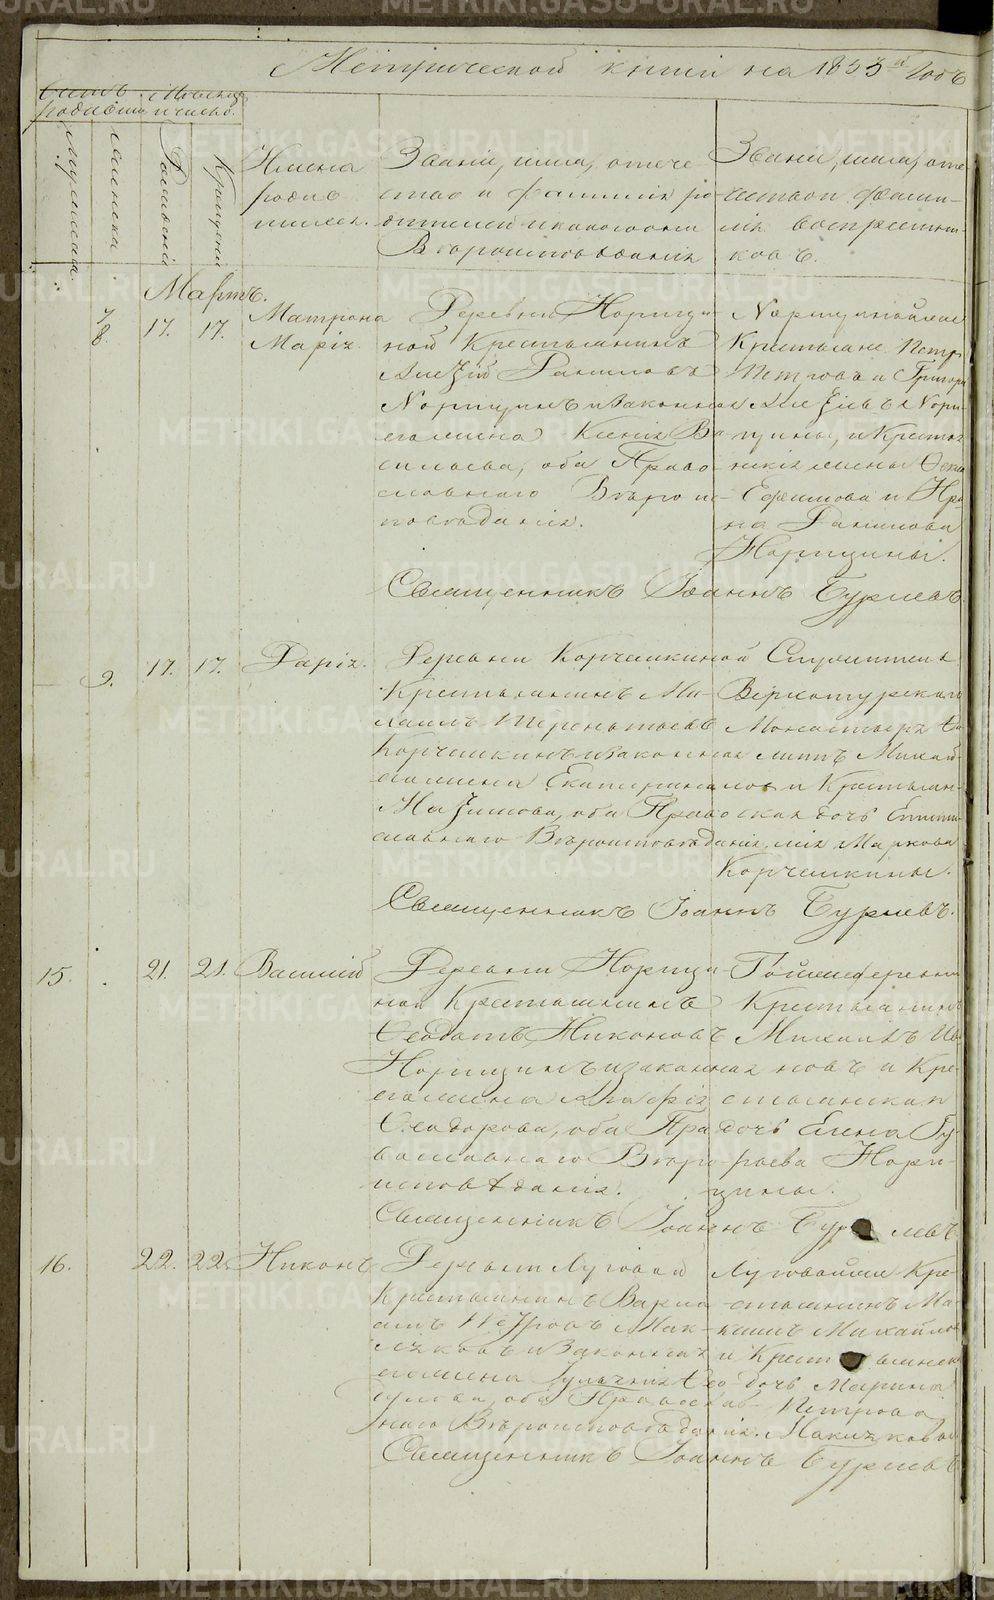 Метрической книги на 1853й годъ
Счетъ родившихся
Мѣсяцъ и число.
Мужеска.
Женска.
Рожденія
Крещенія
Имена родив шихся.
Званіе, имя, отече
ство и фамилія ро
дителей и какого они
Вѣроисповѣданія
Званіе, имя, оте-
чество и фами-
лія воспріемни-
ковъ.
Мартъ.
7
8.
17. 17.
Матрона
Марія.
Деревни Норицы-
ной Крестьянинъ
Даниловъ
Норицинъ и законная
его жена Ксенія Ва
сильева, оба Право
славнаго Вѣроис-
повѣданія.
Норицыной же
Крестьяне Петръ
Петровъ и Григорій
Нори-
цины, и Крестьян
скія жены
Ефимова и Ири
на Данилова
Норицины.
Священникъ Іоаннъ Бурлевъ.
9.
17. 17.
Дарія.
Деревни Корчемкиной
Крестьянинъ Ми-
хаилъ Терентьевъ
Корчемкинъ и законная
его жена Екатерина
Изимова, оба Право
славнаго Вѣроисповѣданія.
Строитель
Верхотурскаго
Монастыря
Михай
ловъ и Крестьян-
ская дочь Евтихі
Маркова
Корчемкины.
Священникъ Іоаннъ Бурлевъ.
15.
21. 21.
Василій
Деревни Норицы
ной Крестьянинъ
Ѳеодотъ Никоновъ
Норицинъ и законная
его жена Агафія
Ѳеодорова, оба Пра
вославнаго Вѣро
исповѣданія.
Той же деревни
Крестьянинъ
Михаилъ Ива
новъ и Кре-
стьянская
дочь Елена Гу-
рьева Нори-
цины.
Священникъ Іоаннъ Бурлевъ
16.
22. 22.
Никонъ
Деревни Луговой
Крестьянинъ Варла
амъ Петровъ Мак-
сяковъ и Законная
его жена Гульянія Ѳео
дулова, оба Православ-
наго Вѣроисповѣданія.
Луговой же Кре-
стьянинъ Ма-
Михайлов
и Крестьянска
дочь Марина
Петрова
Священникъ Іоаннъ Бурлевъ
METRIKI.GASO-URAL.RU